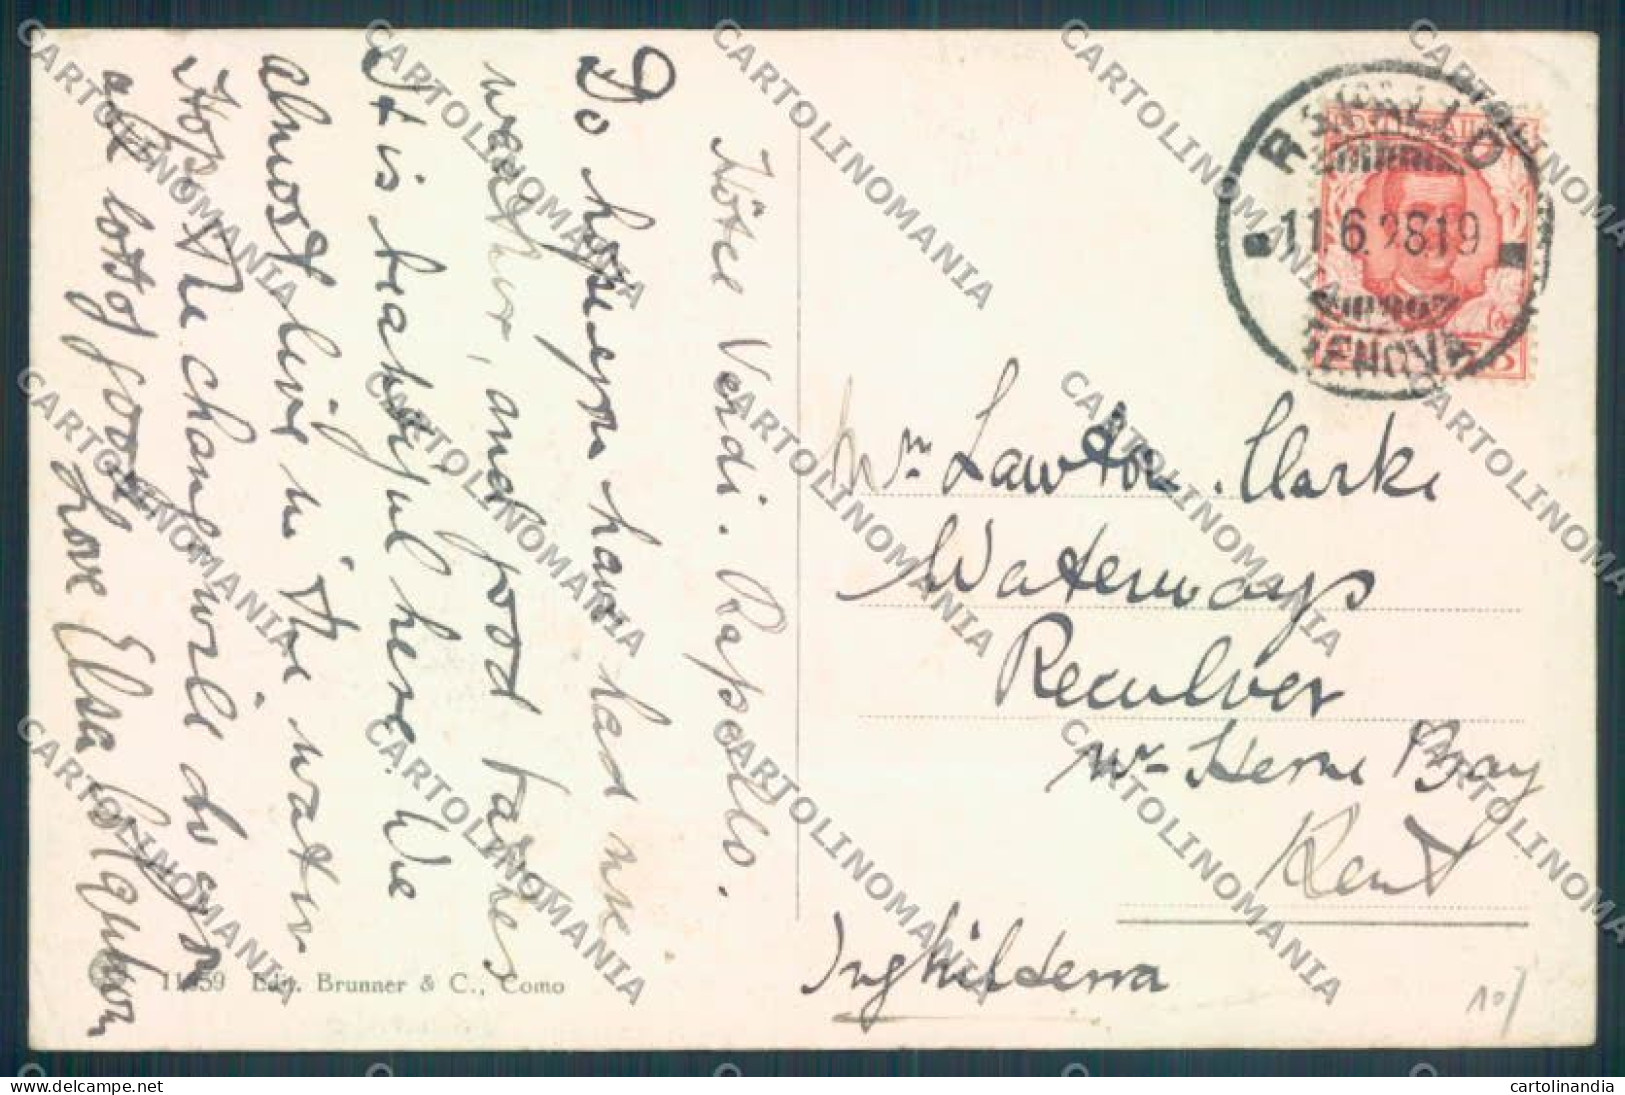 Hôtel Verdi. Rapallo.
Do hope you have had nice
weather, and good
It is beautiful here. We
almost live in the water
Hope the change will do you
all lots of good
Love Elsa Colquhoun
11859 Edit. Brunner & C., Como
RAPALLO
11.6.28.19
GENOVA
Mrs Lawton Clarke
Waterways
Reculver
nr Herne Bay
Kent
Inghilterra
10/
CARTOLINOMANIA
cartolinandia